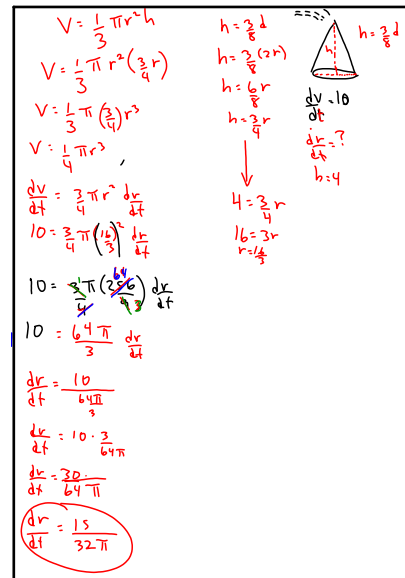 V = 1/3 πr²h
V = 1/3 π r² (3/4 r)
V = 1/3 π (3/4) r³
V = 1/4 πr³
dv/dt = 3/4 πr² dr/dt
10 = 3/4 π (16/3)² dr/dt
10 = 3/4 π (256/9) dr/dt
1 64 3
10 = 64π/3 dr/dt
dr/dt = 10/(64π/3)
dr/dt = 10 · 3/64π
dr/dt = 30/64π
dr/dt = 15/32π
h = 3/8 d
h = 3/8 (2r)
h = 6/8 r
h = 3/4 r
4 = 3/4 r
16 = 3r
r = 16/3
h
h = 3/8 d
dv/dt = 10
dr/dt = ?
h = 4